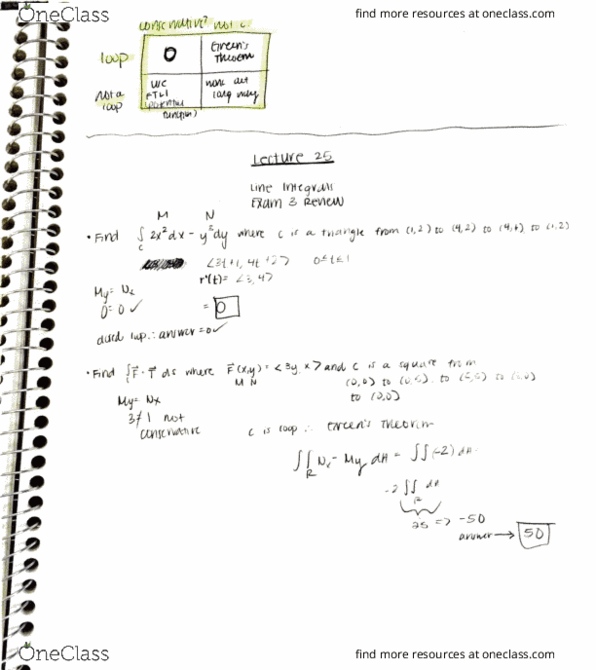 OneClass
find more resources at oneclass.com
conservative? not c.
loop
0
Green's Theorem
not a loop
use FTLI (potential function)
none act long way
Lecture 25
Line Integrals
Exam 3 Review
M N
• Find ∫c 2x²dx - y²dy where c is a triangle from (1,2) to (4,2) to (4,6) to (1,2)
<3t+1, 4t+2> 0≤t≤1
r'(t) = <3,4>
My = Nx
0=0 ✓
= 0
closed loop ∴ answer = 0 ✓
• Find ∫c F⃗ · T⃗ ds where F⃗(x,y) = <3y, x> and c is a square from
M N
(0,0) to (0,5) to (5,5) to (5,0)
to (0,0)
My = Nx
3≠1 not
conservative
c is loop ∴ Green's Theorem
∬R Nx - My dA = ∬(-2) dA
-2 ∬R dA
25 => -50
answer → 50
OneClass
find more resources at oneclass.com